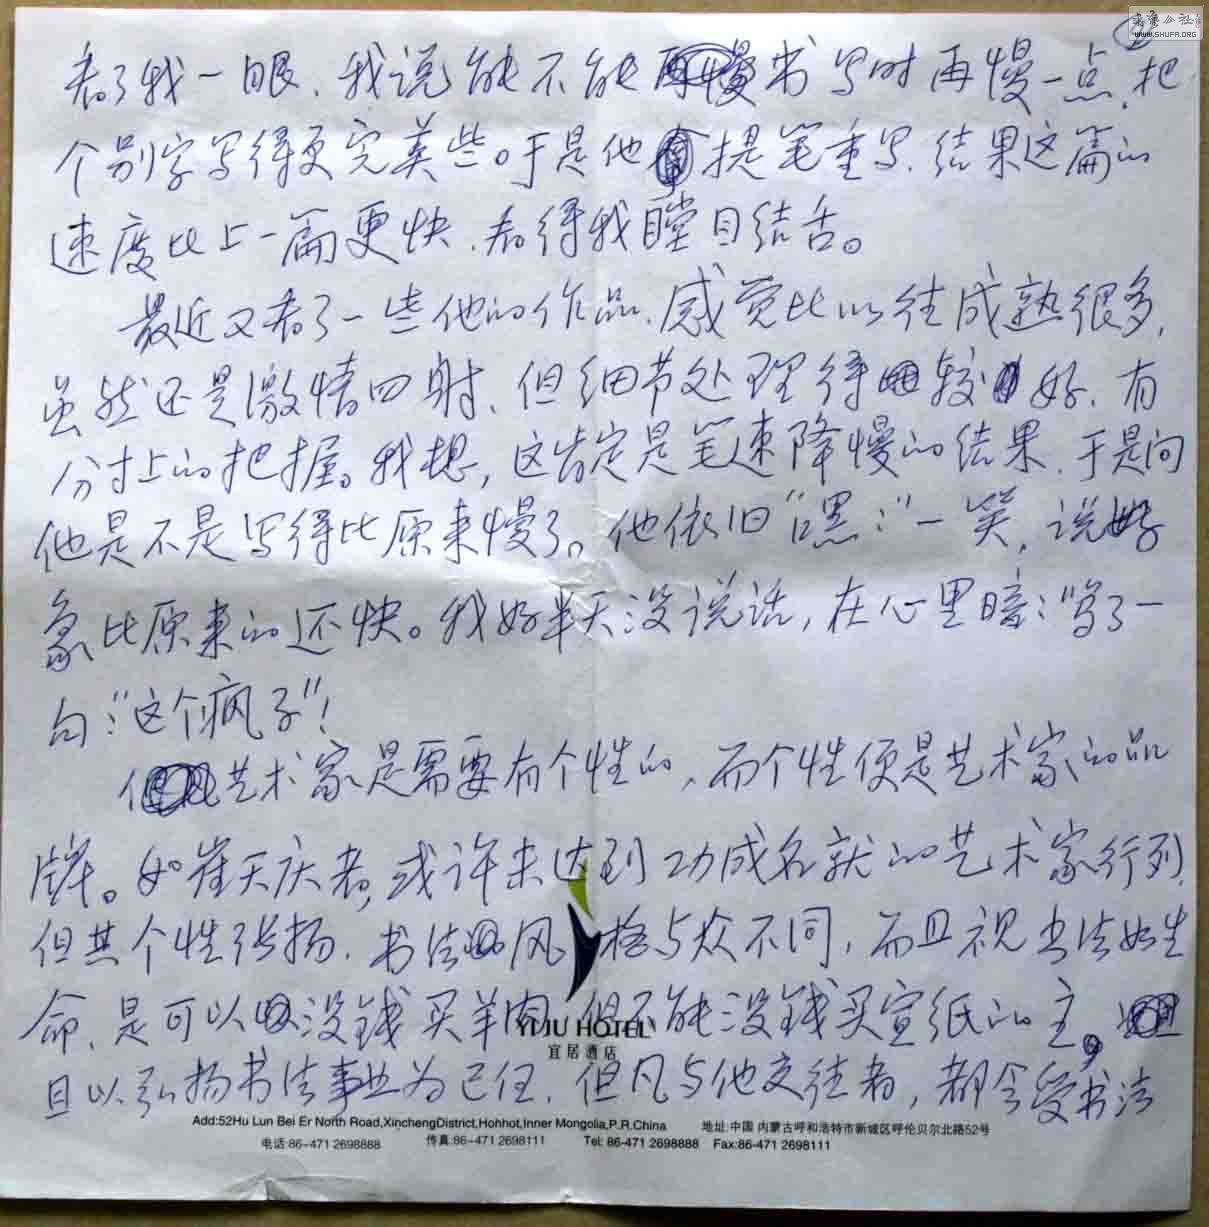 ②
看了我一眼，我说能不能书写时再慢一点，把
个别字写得更完美些。于是他提笔重写，结果这篇的
速度比上一篇更快，看得我瞠目结舌。
最近又看了一些他的作品，感觉比以往成熟很多，
虽然还是激情四射，但细节处理得较好，有
分寸上的把握。我想，这肯定是笔速降慢的结果，于是问
他是不是写得比原来慢了。他依旧“嘿：”一笑，说好
象比原来的还快。我好半天没说话，在心里暗：骂了一
句：“这个疯子”！
艺术家是需要有个性的，而个性便是艺术家的品
牌。如崔天庆者，或许未达到功成名就的艺术家行列，
但其个性张扬，书法风格与众不同，而且视书法如生
命，是可以没钱买羊肉，但不能没钱买宣纸的主，
且以弘扬书法事业为己任，但凡与他交往者，都会受书法
YIJU HOTEL
宜居酒店
Add:52Hu Lun Bei Er North Road,XinchengDistrict,Hohhot,Inner Mongolia,P.R.China 地址:中国 内蒙古呼和浩特市新城区呼伦贝尔北路52号
电话:86-471 2698888 传真:86-471 2698111 Tel: 86-471 2698888 Fax:86-471 2698111
WWW.SHUFA.ORG